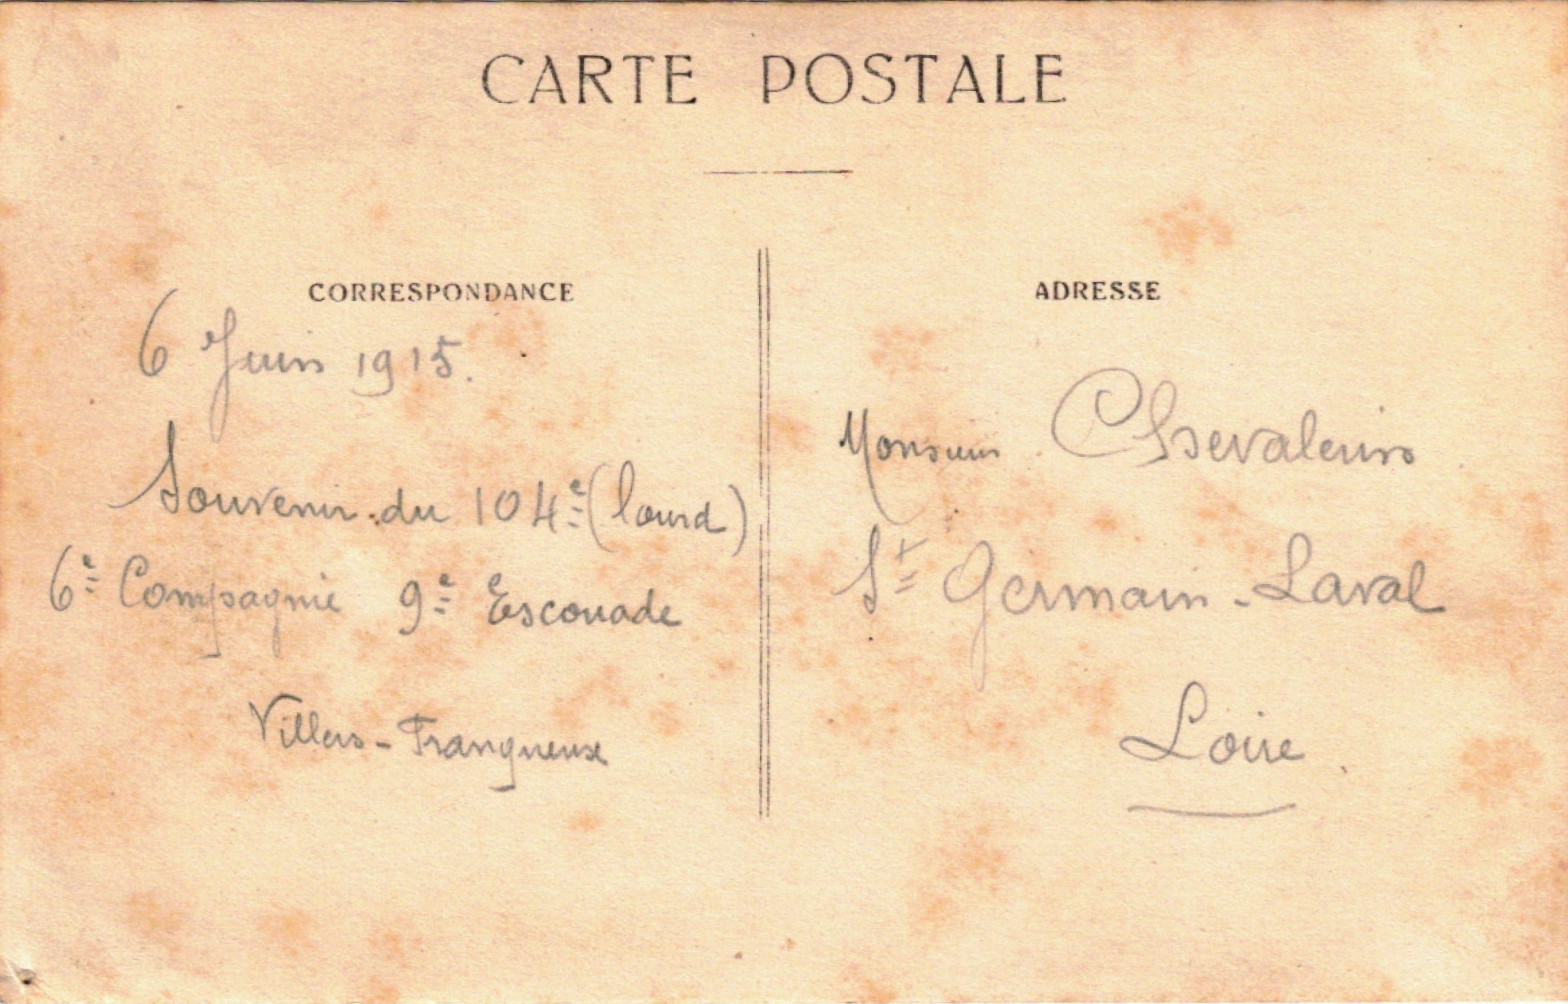 CARTE POSTALE
CORRESPONDANCE
6 Juin 1915.
Souvenir du 104e (lourd)
6e Compagnie 9e Escouade
Villers-Franqueux
ADRESSE
Monsieur Chevalerin
St Germain-Laval
Loire.